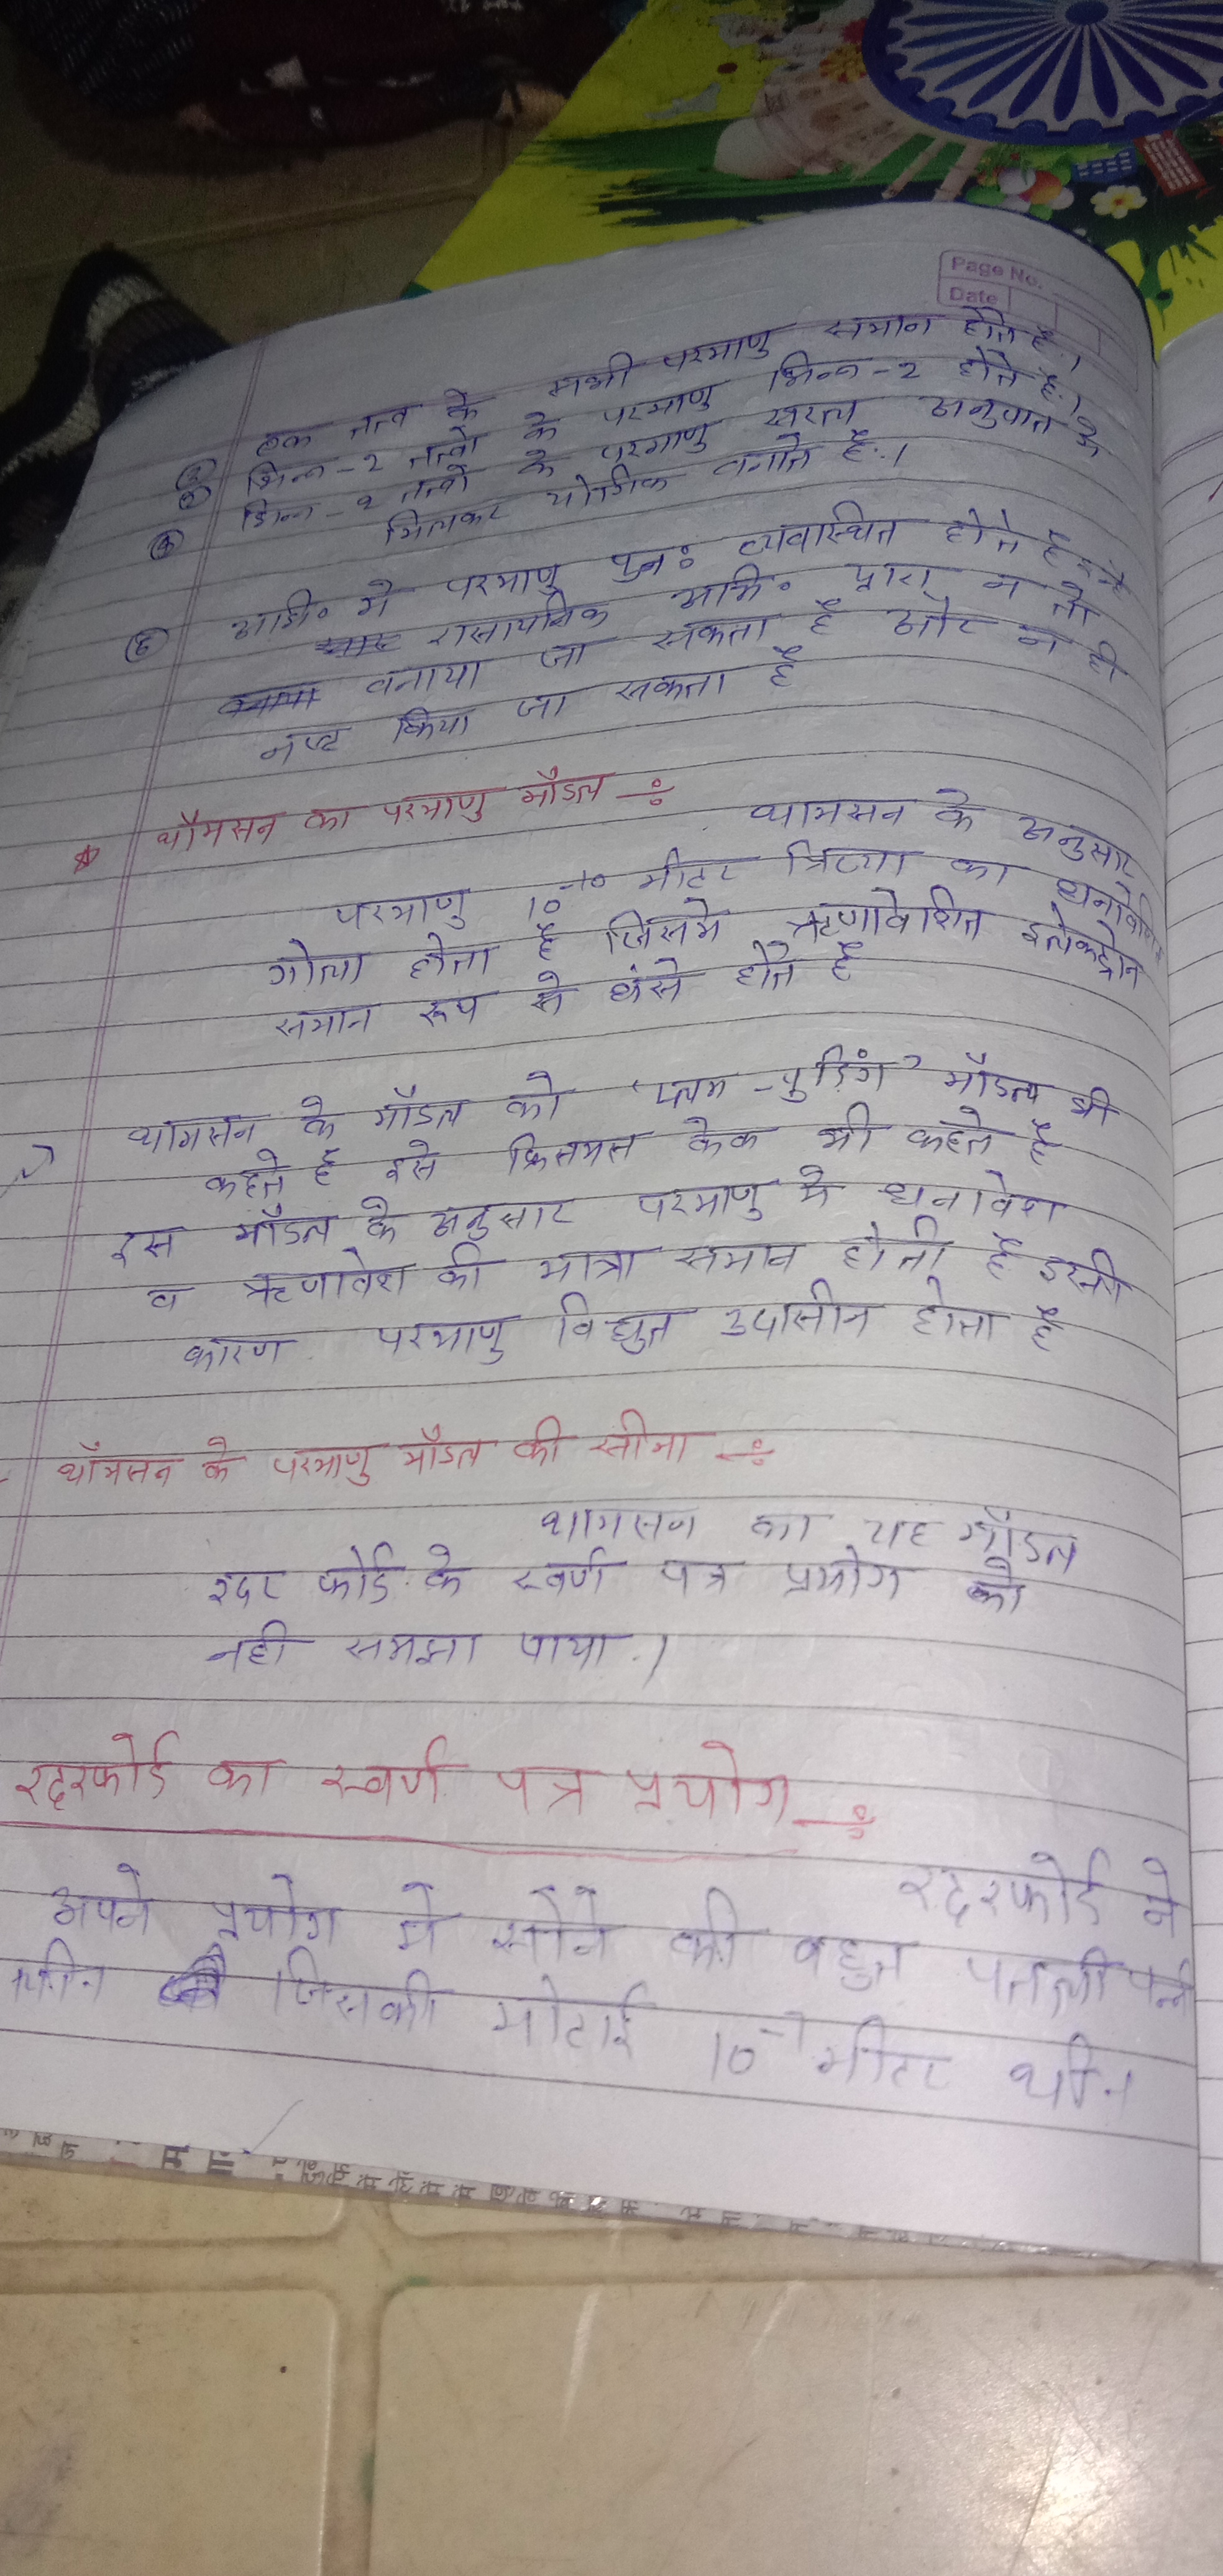 Page No.
Date
② एक तत्व के सभी परमाणु समान होते है।
③ भिन्न-2 तत्वो के परमाणु भिन्न-2 होते है।
④ भिन्न-2 तत्वो के परमाणु सरल अनुपात मे
मिलकर योगिक बनाते है।
⑤ अभि० मे परमाणु पुनः व्यवास्थित होते है
रासायनिक अभि० द्वारा न तो
बनाया जा सकता है और न ही
नष्ट किया जा सकता है
थॉमसन का परमाणु मॉडल ÷
थामसन के अनुसार
परमाणु 10⁻¹⁰ मीटर त्रिज्या का धनावेशित
गोला होता है जिसमे ऋणावेशित इलेक्ट्रोन
समान रूप से धंसे होते है
थामसन के मॉडल को 'प्लम-पुडिंग' मॉडल भी
कहते है इसे क्रिसमस केक भी कहते है
इस मॉडल के अनुसार परमाणु मे धनावेश
व ऋणावेश की मात्रा समान होती है इसी
कारण परमाणु विद्युत उदासीन होता है
थॉमसन के परमाणु मॉडल की सीमा ÷
थामसन का यह मॉडल
रदर फोर्ड के स्वर्ण पत्र प्रयोग को
नही समझा पाया।
रदरफोर्ड का स्वर्ण पत्र प्रयोग ÷
रदरफोर्ड ने
अपने प्रयोग मे सोने की बहुत पतली पन्नी
ली। जिसकी मोटाई 10⁻⁷ मीटर थी।